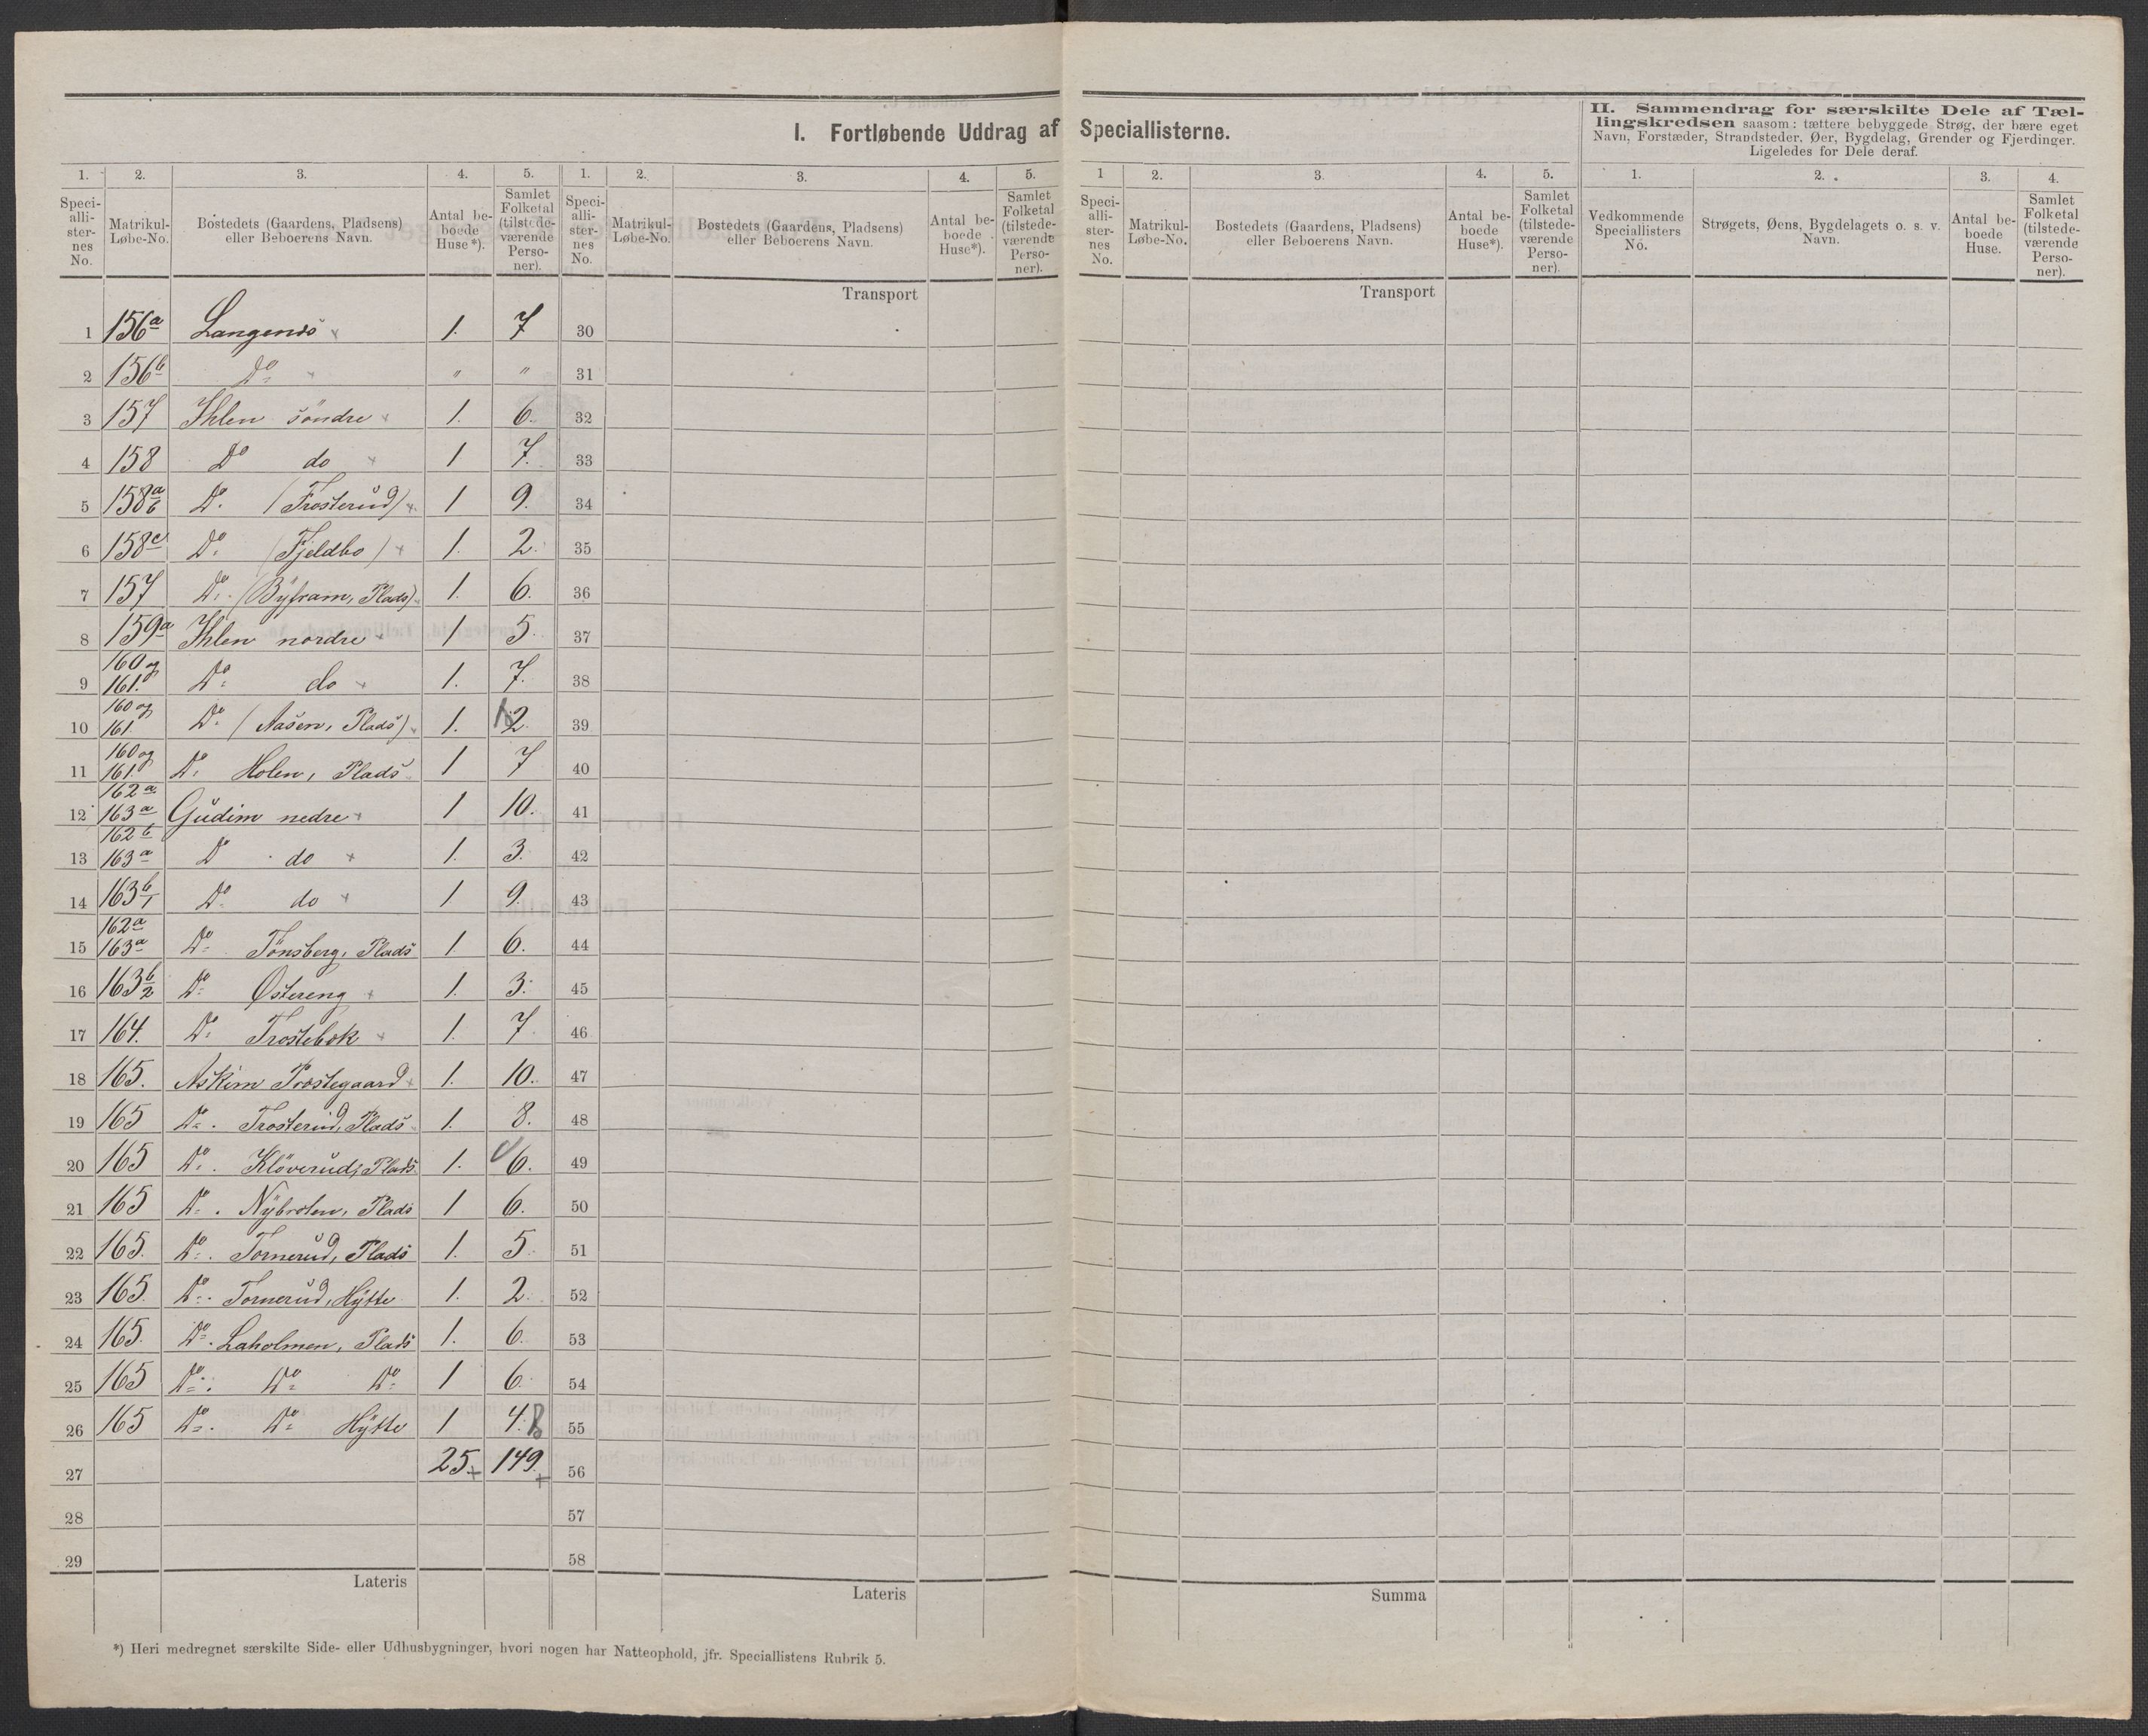 I. Fortløbende Uddrag af Speciallisterne.
II. Sammendrag for særskilte Dele af Tæl-
lingskredsen saasom: tættere bebyggede Strøg, der bære eget
Navn, Forstæder, Strandsteder, Øer, Bygdelag, Grender og Fjerdinger.
Ligeledes for Dele deraf.
1. 2. 3. 4. 5. 1. 2. 3. 4. 5. 1 2. 3. 4. 5. 1. 2. 3. 4.
Speci-alli-ster-nes No. Matrikul-Løbe-No. Bostedets (Gaardens, Pladsens) eller Beboerens Navn. Antal be-boede Huse*). Samlet Folketal (tilstede-værende Perso-ner).
Speci-alli-ster-nes No. Matrikul-Løbe-No. Bostedets (Gaardens, Pladsens) eller Beboerens Navn. Antal be-boede Huse*). Samlet Folketal (tilstede-værende Perso-ner).
Speci-alli-ster-nes No. Matrikul-Løbe-No. Bostedets (Gaardens, Pladsens) eller Beboerens Navn. Antal be-boede Huse*). Samlet Folketal (tilstede-værende Perso-ner).
Vedkommende Speciallisters No. Strøgets, Øens, Bygdelagets o. s. v. Navn. Antal be-boede Huse. Samlet Folketal (tilstede-værende Perso-ner).
Transport Transport
1 156a Langenæs 1. 7 30
2 156b Do " " 31
3 157 Ihlen söndre 1. 6. 32
4 158 Do do 1 7. 33
5 158a/b Do (Trosterud) 1 9. 34
6 158c Do (Fjeldbo) 1. 2. 35
7 157 Do (Byfram, Plads) 1. 6. 36
8 159a Ihlen nordre 1 5. 37
9 160 og 161. Do do 1. 7. 38
10 160 og 161 Do (Aasen, Plads) 1. 2. 39
11 160 og 161. Do Holen, Plads 1 7 40
12 162a 163a Gudim nedre 1 10. 41
13 162b 163a Do do 1. 3. 42
14 163b/1 Do do 1 9. 43
15 162a 163a Do Tönsberg, Plads 1 6. 44
16 163b/2 Do Østereng 1. 3. 45
17 164. Do Trostebøk 1. 7. 46
18 165. Askim Præstegaard 1. 10. 47
19 165 Do. Trosterud, Plads 1. 8. 48
20 165 Do. Klöverud, Plads 1. 6. 49
21 165 Do. Nybroten, Plads 1 6. 50
22 165. Do. Tornerud, Plads 1. 5. 51
23 165. Do. Tornerud, Hytte 1. 2. 52
24 165. Do. Laholmen, Plads 1. 6. 53
25 165 Do. Do Do 1 6. 54
26 165 Do. Do Hytte 1 4. 55
27 25. 149. 56
28 57
29 58
Lateris Lateris Summa
*) Heri medregnet særskilte Side- eller Udhusbygninger, hvori nogen har Natteophold, jfr. Speciallistens Rubrik 5.